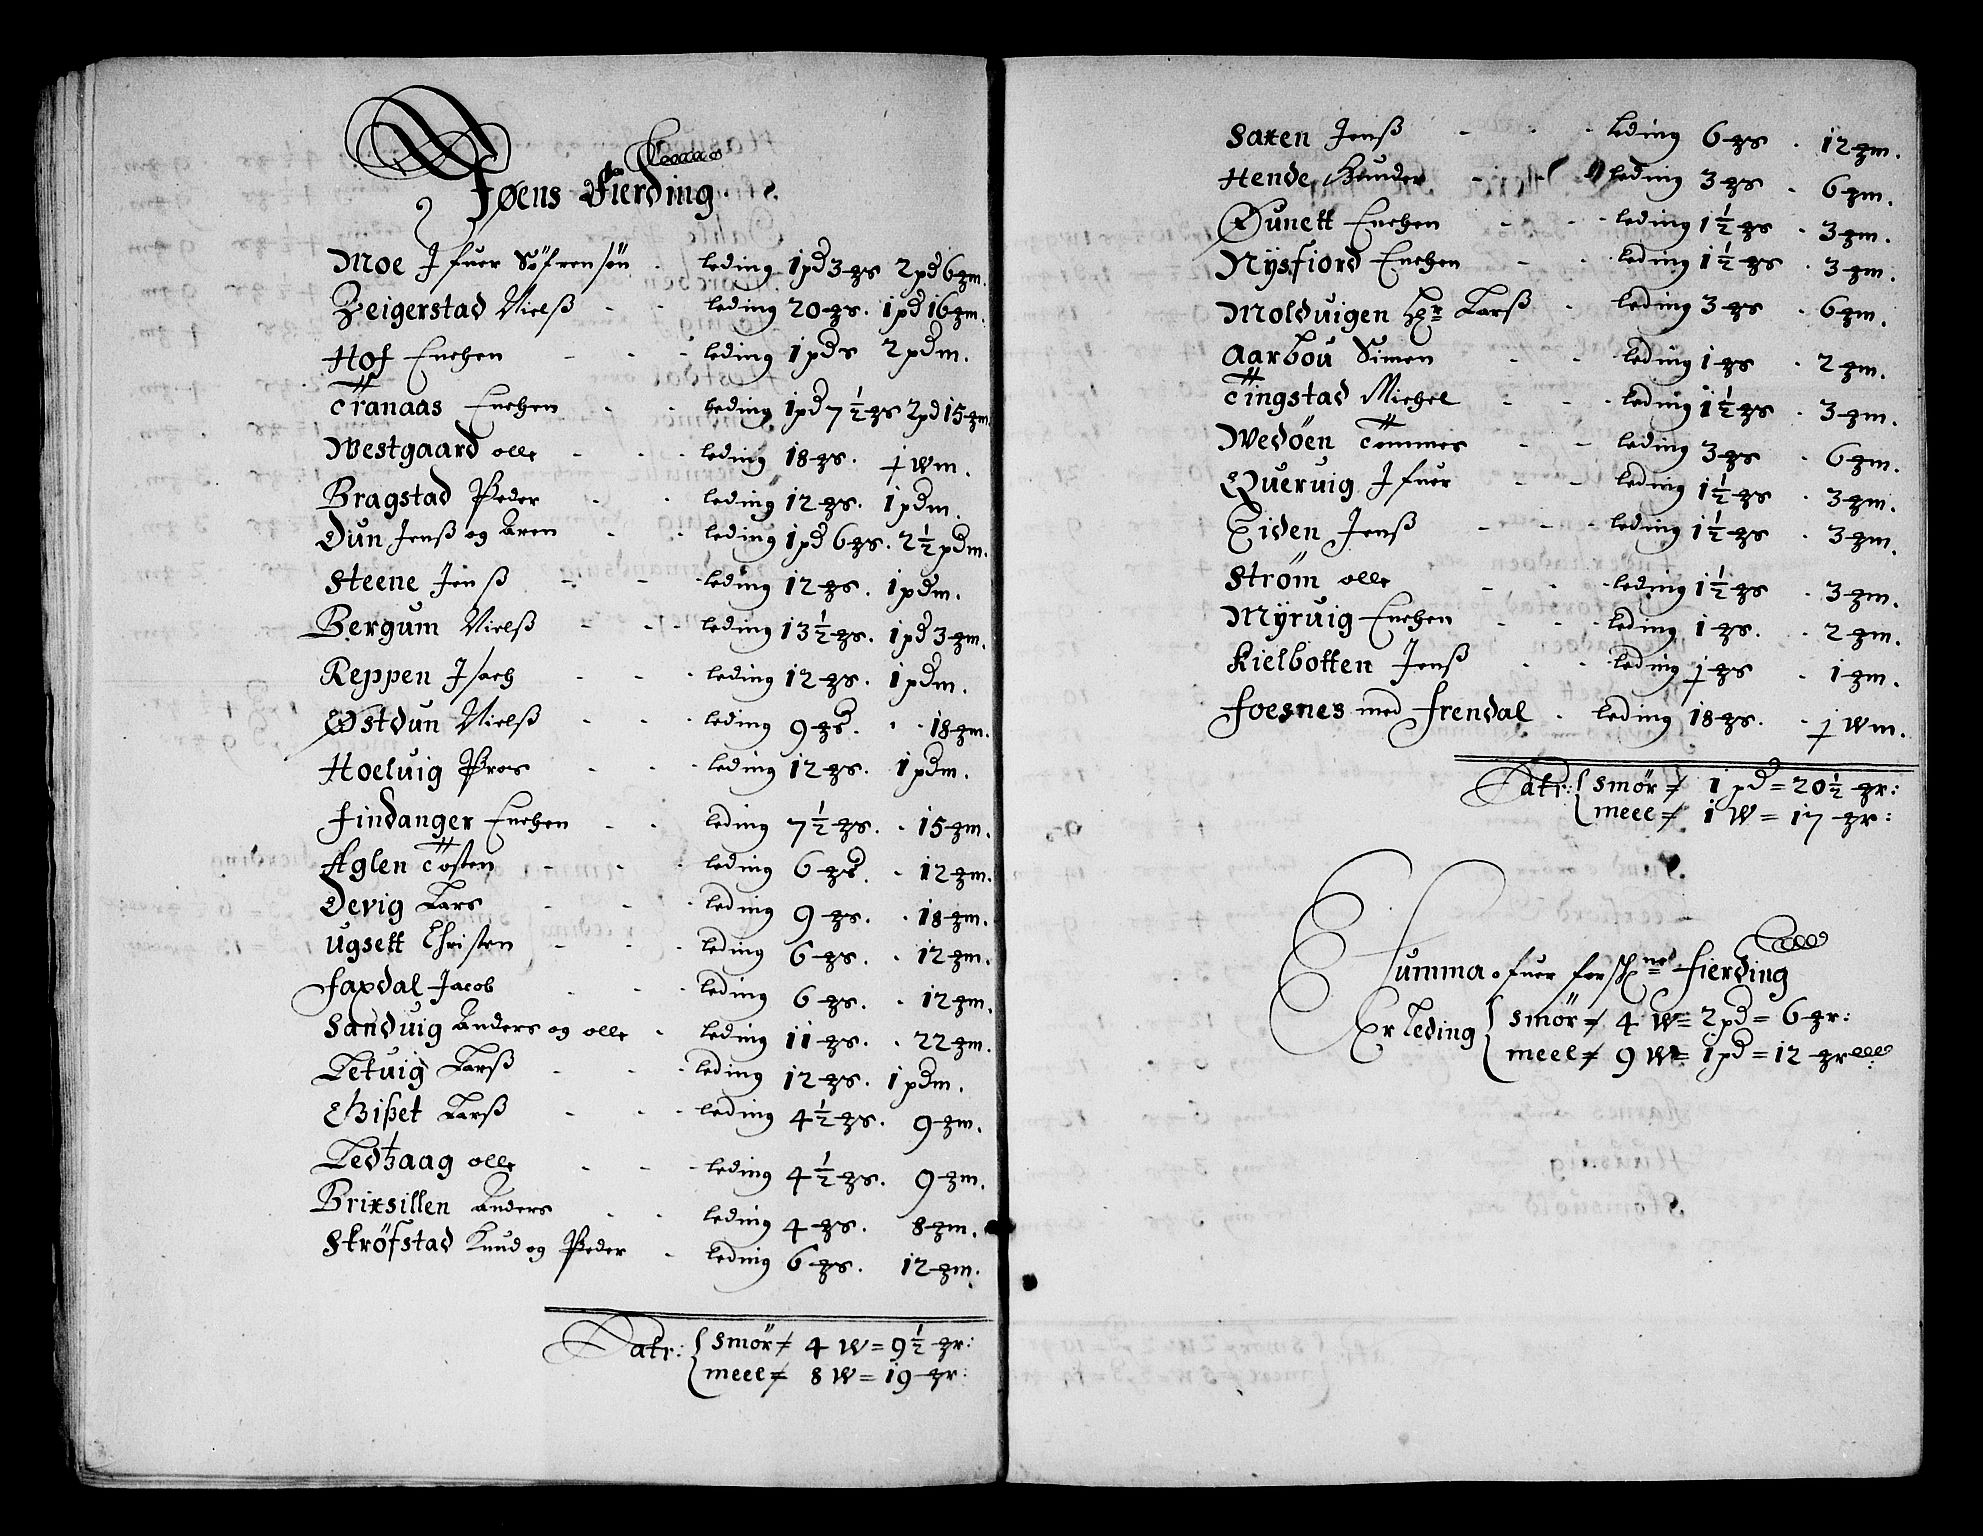 Jøens Fierding.
Moe Jfuer Söfrensön . leding 1 pd 3 zs 2 pd 6 zm.
Zeigerstad Nielß - - leding 20 zs. 1 pd 16 zm.
Hof Enchen - - - leding 1 pd s 2 pd m.
Tranaas Enchen - - leding 1 pd 7 1/2 zs 2 pd 15 zm
Westgaard olle - - - leding 18 zs. j W m.
Bragstad Peder - - leding 12 zs. 1 pd m.
Dun Jenß og Aren - - leding 1 pd 6 zs. 2 1/2 pd m.
Steene Jenß - - leding 12 zs. 1 pd m.
Bergum Nielß - - - leding 13 1/2 zs. 1 pd 3 zm.
Reppen Jsach - - - leding 12 zs. 1 pd m.
Østdun Nielß - - - leding 9 zs. . . 18 zm.
Hoeluig Pros - - - leding 12 zs. 1 pd m.
Findanger Enchen - - leding 7 1/2 zs. . 15 zm.
Aglen Tosten - - - leding 6 zs. . 12 zm.
Devig Lars - - - leding 9 zs. . 18 zm.
Ugsett Christen - - leding 6 zs. . 12 zm.
Faxdal Jacob - - leding 6 zs. . 12 zm.
Sanduig Anders og olle . leding 11 zs. . 22 zm.
Letuig Larß - - - leding 12 zs. 1 pd m.
Bißet Larß - - - leding 4 1/2 zs. 9 zm.
Ledhaag olle - - - leding 4 1/2 zs. 9 zm.
Brixsillen Anders - - leding 4 zs. 8 zm.
Ströfstad Knud og Peder - leding 6 zs. 12 zm.
Latr: smör ≠ 4 W = 9 1/2 zr:
meel ≠ 8 W = 19 zr:
Saxen Jenß - - - leding 6 zs . 12 zm.
Hende - - leding 3 zs . 6 zm.
Dunett Enchen - - - leding 1 1/2 zs . 3 zm.
Nysfiord Enchen - - leding 1 1/2 zs . 3 zm.
Molduigen Hr Larß - leding 3 zs . 6 zm.
Aarbou Simen - - leding 1 zs . 2 zm.
Tingstad Michel - - - leding 1 1/2 zs . 3 zm.
Wedöen Tommes - - leding 3 zs . 6 zm.
Queruig Jfuer - - leding 1 1/2 zs . 3 zm.
Eiden Jenß - - - leding 1 1/2 zs . 3 zm.
Ström olle - - leding 1 1/2 zs . 3 zm.
Myruig Enchen - - leding 1 zs. . 2 zm.
Kielbotten Jenß - - leding j zs . 1 zm.
Foesnes med Frendal . leding 18 zs. . j W m.
Latr: smör ≠ 1 pd = 20 1/2 zr:
meel ≠ 1 W = 17 zr:
Summa ofuer forschne Fierding
Er Leding smör ≠ 4 W = 2 pd = 6 zr:
meel ≠ 9 W = 1 pd = 12 zr